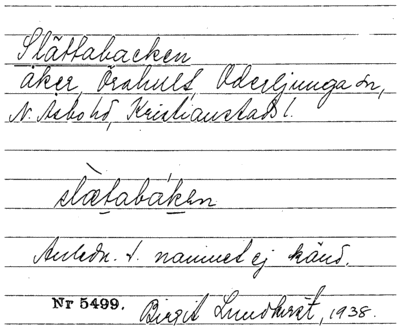 Slättabacken
åker, Örahult, Oderljunga sn,
N. Åsbo hd, Kristianstads l.
slætabáken
Anledn. t. namnet ej känd.
Nr 5499. Birgit Lundkvist, 1938.